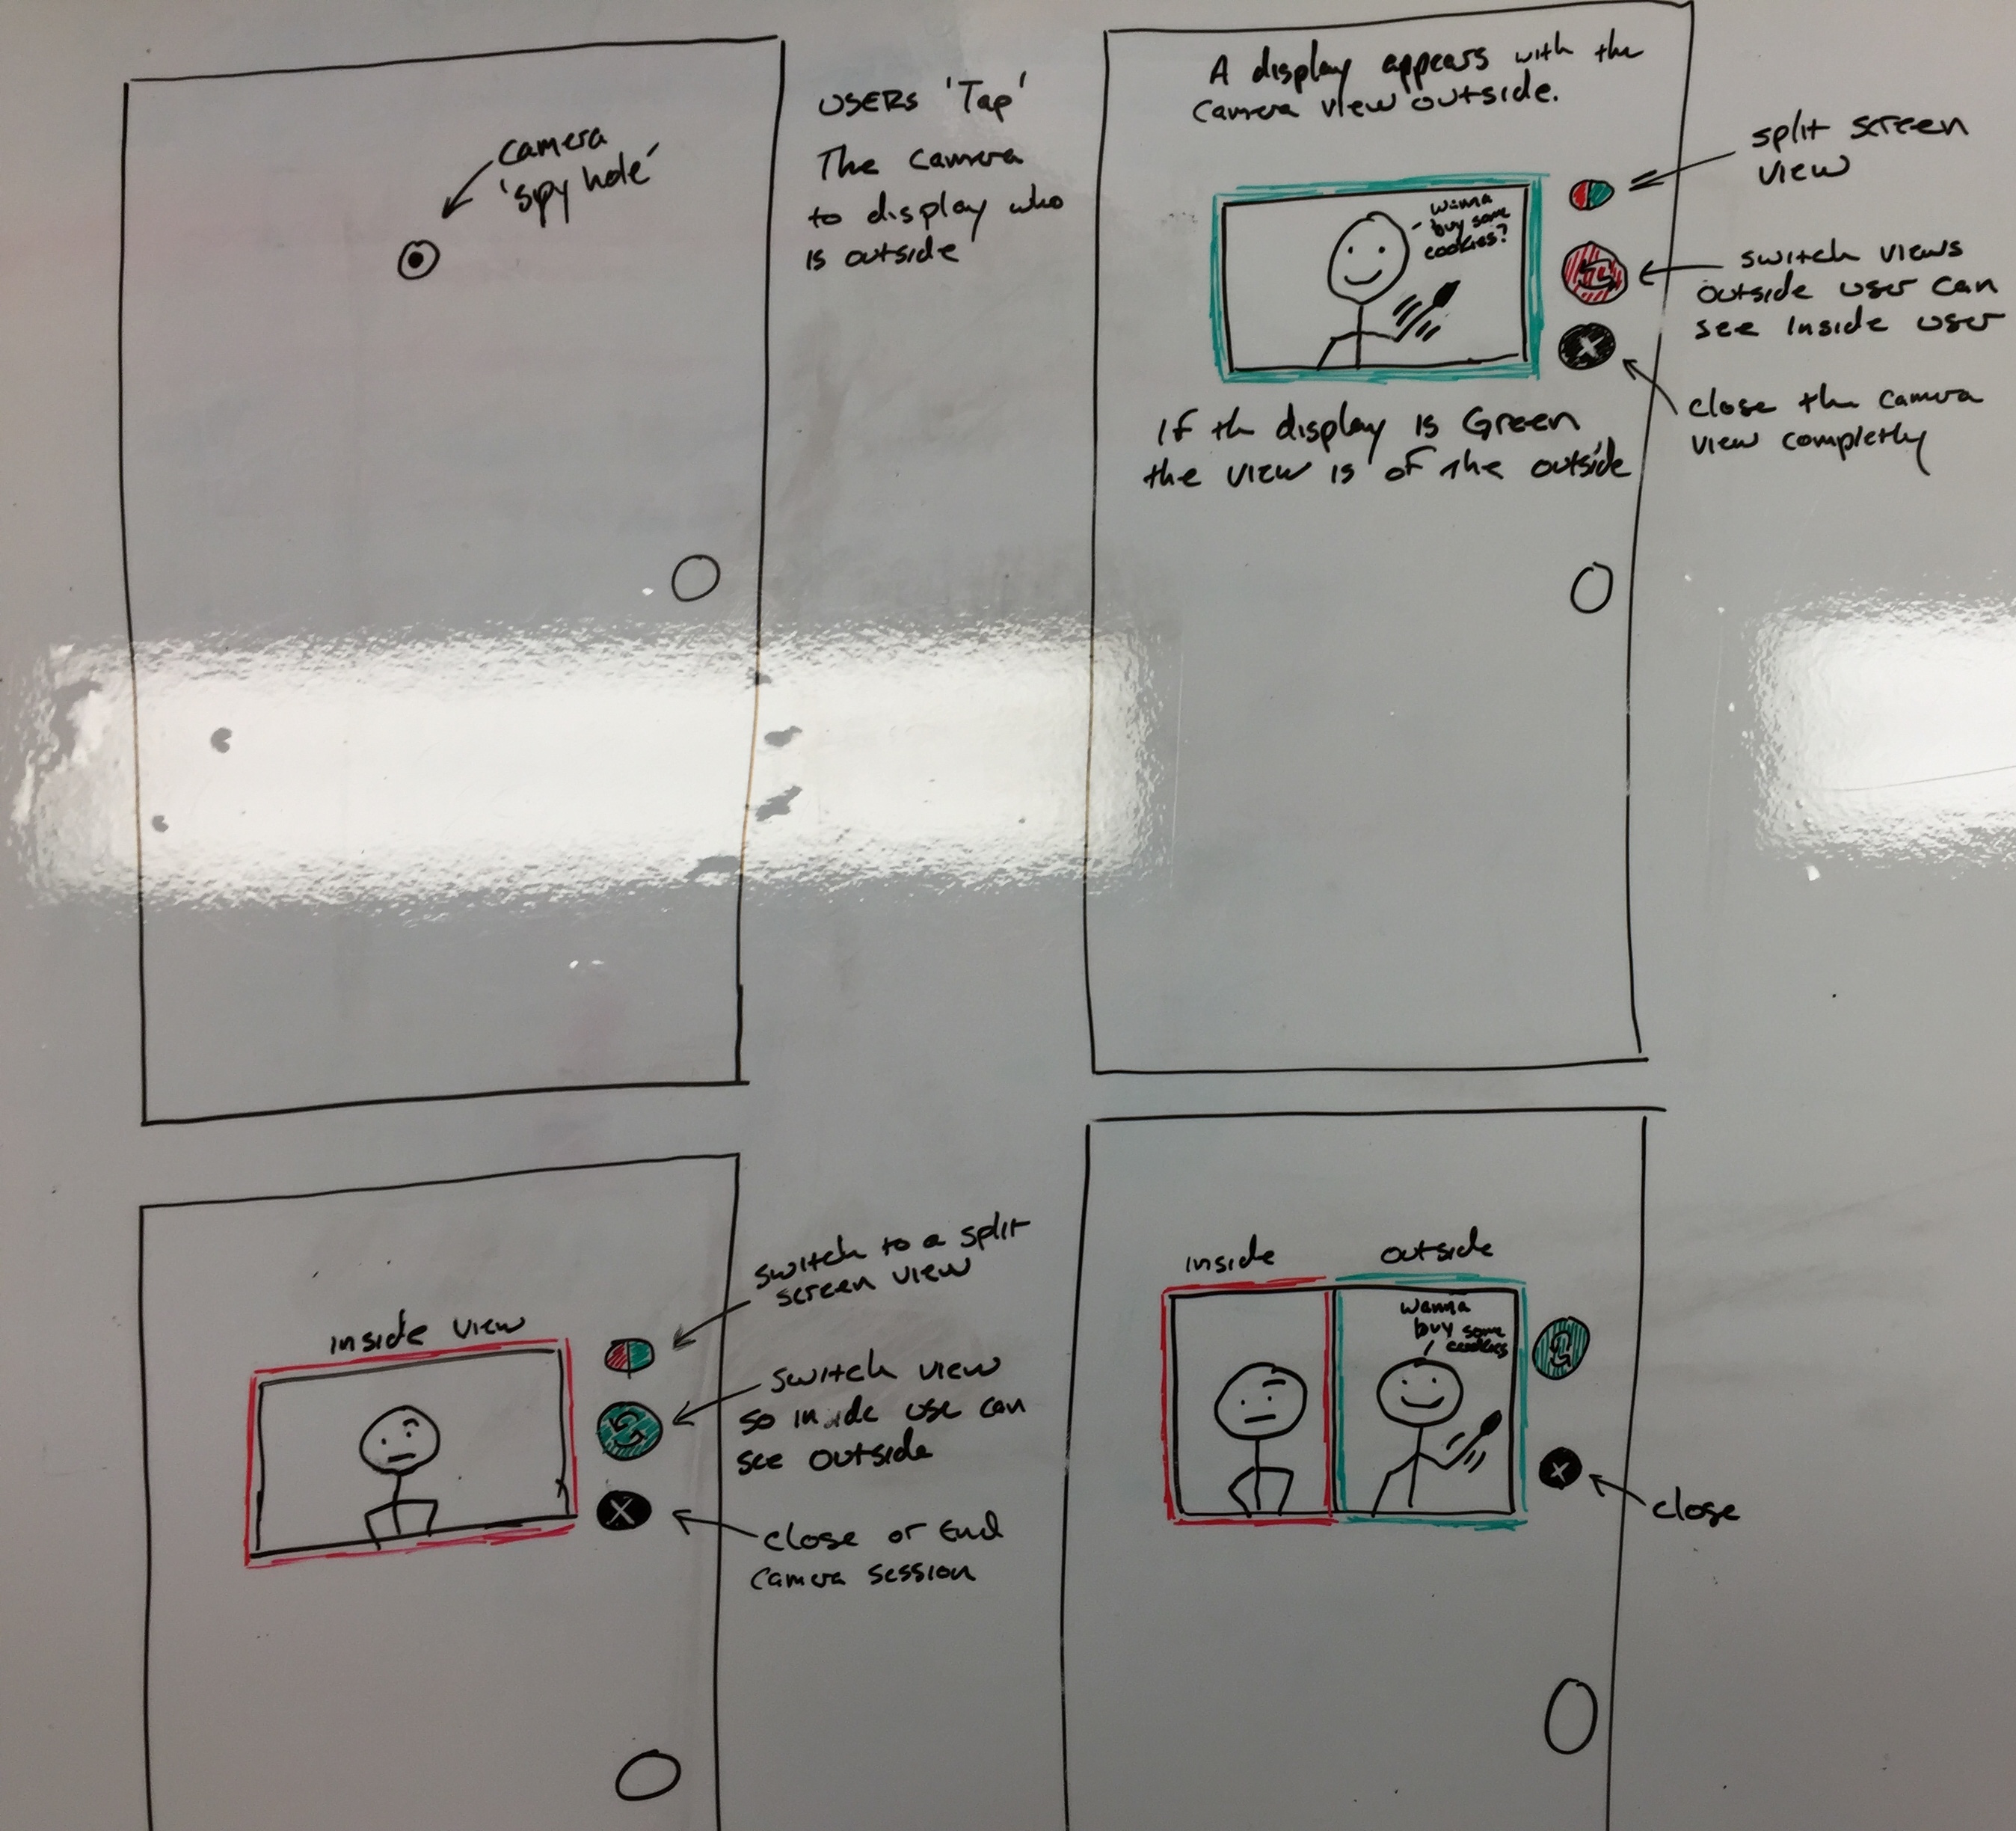 camera
'spy hole'
USERS 'Tap'
The camera
to display who
is outside
A display appears with the
camera view outside.
wanna
buy some
cookies?
split screen
view
switch views
outside user can
see inside user
close the camera
view completly
If th display is Green
the view is of the outside
inside view
switch to a split
screen view
switch view
so inside use can
see outside
X
close or End
camera session
inside
outside
wanna
buy some
cookies
X
close